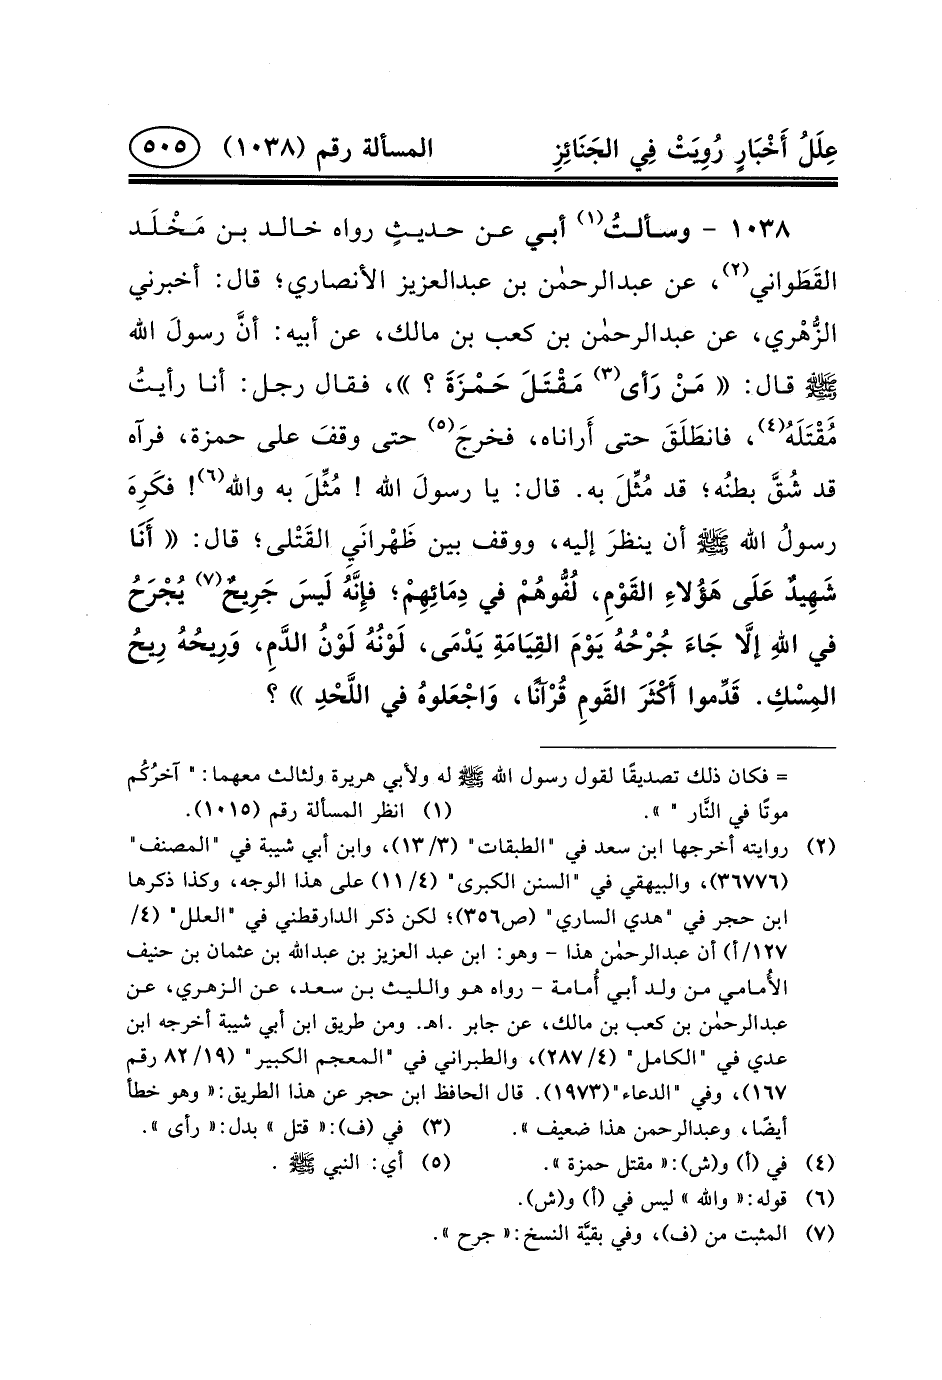 عِلَلُ أَخْبَارٍ رُوِيَتْ فِي الجَنَائِزِ المسألة رقم (١٠٣٨) ٥٠٥
١٠٣٨ - وسألتُ(١) أبي عن حديثٍ رواه خالد بن مَخْلَد
القَطَواني(٢)، عن عبدالرحمٰن بن عبدالعزيز الأنصاري؛ قال: أخبرني
الزُّهْري، عن عبدالرحمٰن بن كعب بن مالك، عن أبيه: أنَّ رسولَ الله
ﷺ قال: « مَنْ رَأى(٣) مَقْتَلَ حَمْزَةَ ؟ »، فقال رجل: أنا رأيتُ
مَقْتَلَهُ(٤)، فانطَلَقَ حتى أَراناه، فخرجَ(٥) حتى وقفَ على حمزة، فرآه
قد شُقَّ بطنُه؛ قد مُثِّلَ به. قال: يا رسولَ الله ! مُثِّلَ به والله(٦)! فكَرِهَ
رسولُ الله ﷺ أن ينظرَ إليه، ووقف بين ظَهْرانَيِ القَتْلى؛ قال: « أَنَا
شَهِيدٌ عَلَى هَؤُلاءِ القَوْمِ، لُفُّوهُمْ في دِمَائِهِمْ؛ فإِنَّهُ لَيسَ جَرِيحٌ(٧) يُجْرَحُ
في اللهِ إلَّا جَاءَ جُرْحُهُ يَوْمَ القِيَامَةِ يَدْمَى، لَوْنُهُ لَوْنُ الدَّمِ، وَرِيحُهُ رِيحُ
المِسْكِ. قَدِّموا أَكْثَرَ القَومِ قُرْآنًا، وَاجْعَلوهُ في اللَّحْدِ » ؟
= فكان ذلك تصديقًا لقول رسول الله ﷺ له ولأبي هريرة ولثالث معهما: " آخرُكُم
موتًا في النَّار " ». (١) انظر المسألة رقم (١٠١٥).
(٢) روايته أخرجها ابن سعد في "الطبقات" (١٣/٣)، وابن أبي شيبة في "المصنف"
(٣٦٧٧٦)، والبيهقي في "السنن الكبرى" (١١/٤) على هذا الوجه، وكذا ذكرها
ابن حجر في "هدي الساري" (ص٣٥٦)؛ لكن ذكر الدارقطني في "العلل" (٤/
١٢٧/أ) أن عبدالرحمٰن هذا - وهو: ابن عبد العزيز بن عبدالله بن عثمان بن حنيف
الأُمامي من ولد أبي أُمامة - رواه هو والليث بن سعد، عن الزهري، عن
عبدالرحمٰن بن كعب بن مالك، عن جابر .اهـ. ومن طريق ابن أبي شيبة أخرجه ابن
عدي في "الكامل" (٢٨٧/٤)، والطبراني في "المعجم الكبير" (٨٢/١٩ رقم
١٦٧)، وفي "الدعاء"(١٩٧٣). قال الحافظ ابن حجر عن هذا الطريق:« وهو خطأ
أيضًا، وعبدالرحمن هذا ضعيف ». (٣) في (ف):« قتل » بدل:« رأى ».
(٤) في (أ) و(ش):« مقتل حمزة ». (٥) أي: النبي ﷺ .
(٦) قوله:« والله » ليس في (أ) و(ش).
(٧) المثبت من (ف)، وفي بقيَّة النسخ:« جرح ».